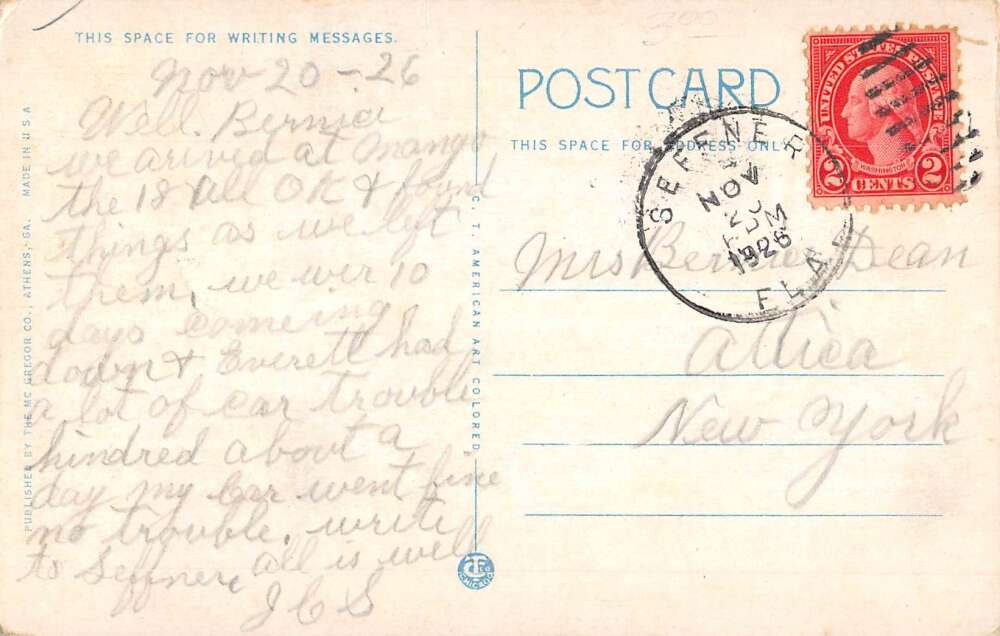 THIS SPACE FOR WRITING MESSAGES.
Nov 20-26
Well. Bernice
we arived at Mango
the 18 all OK & found
things as we left
them, we wer 10
days comeing
down & Everett had
a lot of car trouble
hindred about a
day my car went fine
no trouble. write
to Seffner, all is well
J C S
PUBLISHED BY THE MC GREGOR CO., ATHENS, GA. MADE IN U S A
C. T. AMERICAN ART COLORED
300
POSTCARD
THIS SPACE FOR ADDRESS ONLY
SEFFNER
NOV
PM
1926
FLA.
UNITED STATES POSTAGE
WASHINGTON
2 CENTS 2
Mrs Bernice Dean
Attica
New York